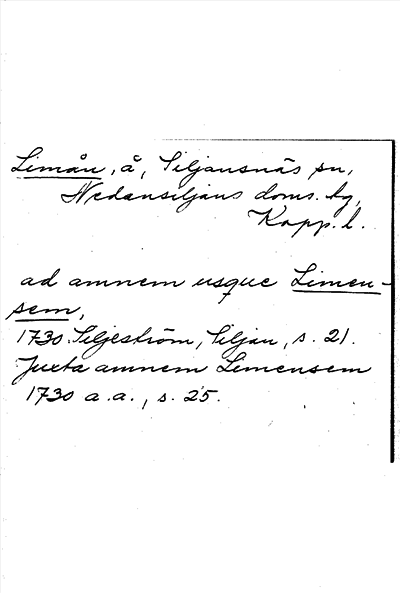 Limån, å, Siljansnäs sn,
Nedansiljans doms. hg,
Kopp. l.
ad amnem usque Limen-
sem,
1730 Siljeström, Siljan, s. 21.
Juxta amnem Limensem
1730 a.a., s. 25.